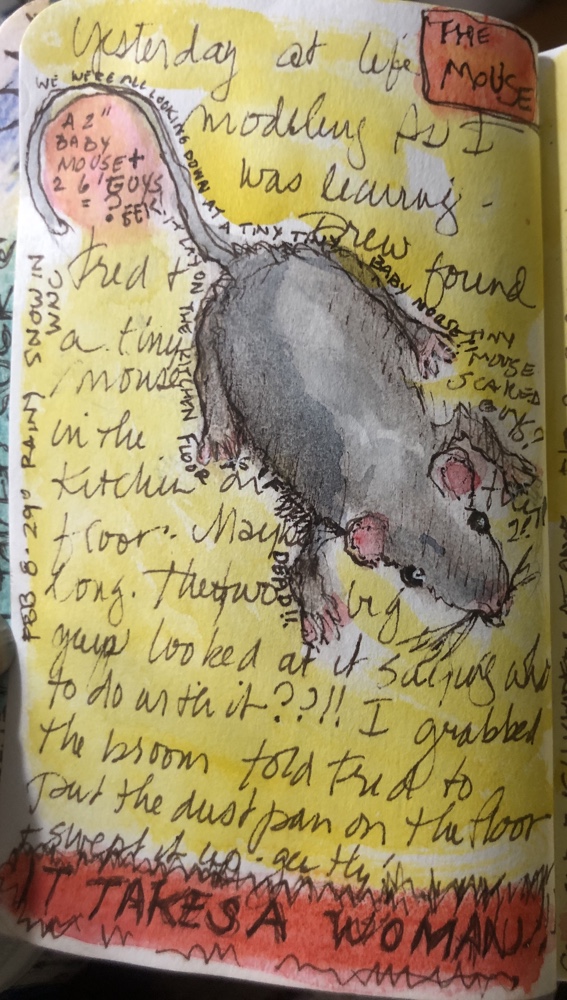 THE
MOUSE
Yesterday at life
modeling As I
was leaving -
Drew found
Fred +
a tiny
mouse
in the
Kitchen on
floor. Maybe
long. The two big
guys looked at it saying
to do with it??!! I grabbed
the broom told Fred to
put the dust pan on the floor
+ swept it up.
IT TAKES A WOMAN!
A 2"
BABY
MOUSE +
2 6' GUYS
= ?
EEK
WE WERE ALL LOOKING DOWN AT A TINY TINY BABY MORSE!!
TINY
MOUSE
SCARED
GUYS?
IT LAY
ON THE KITCHAN FLOOR
DEAD!!
FEB 8. 29° RAINY SNOW IN
WNC